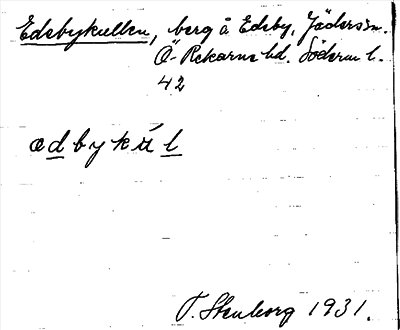 Edebykullen, berg å Edeby, Jäders sn.
Ö-Rekarne hd. Söderm l.
42
ædbykùl
T. Stenborg 1931.